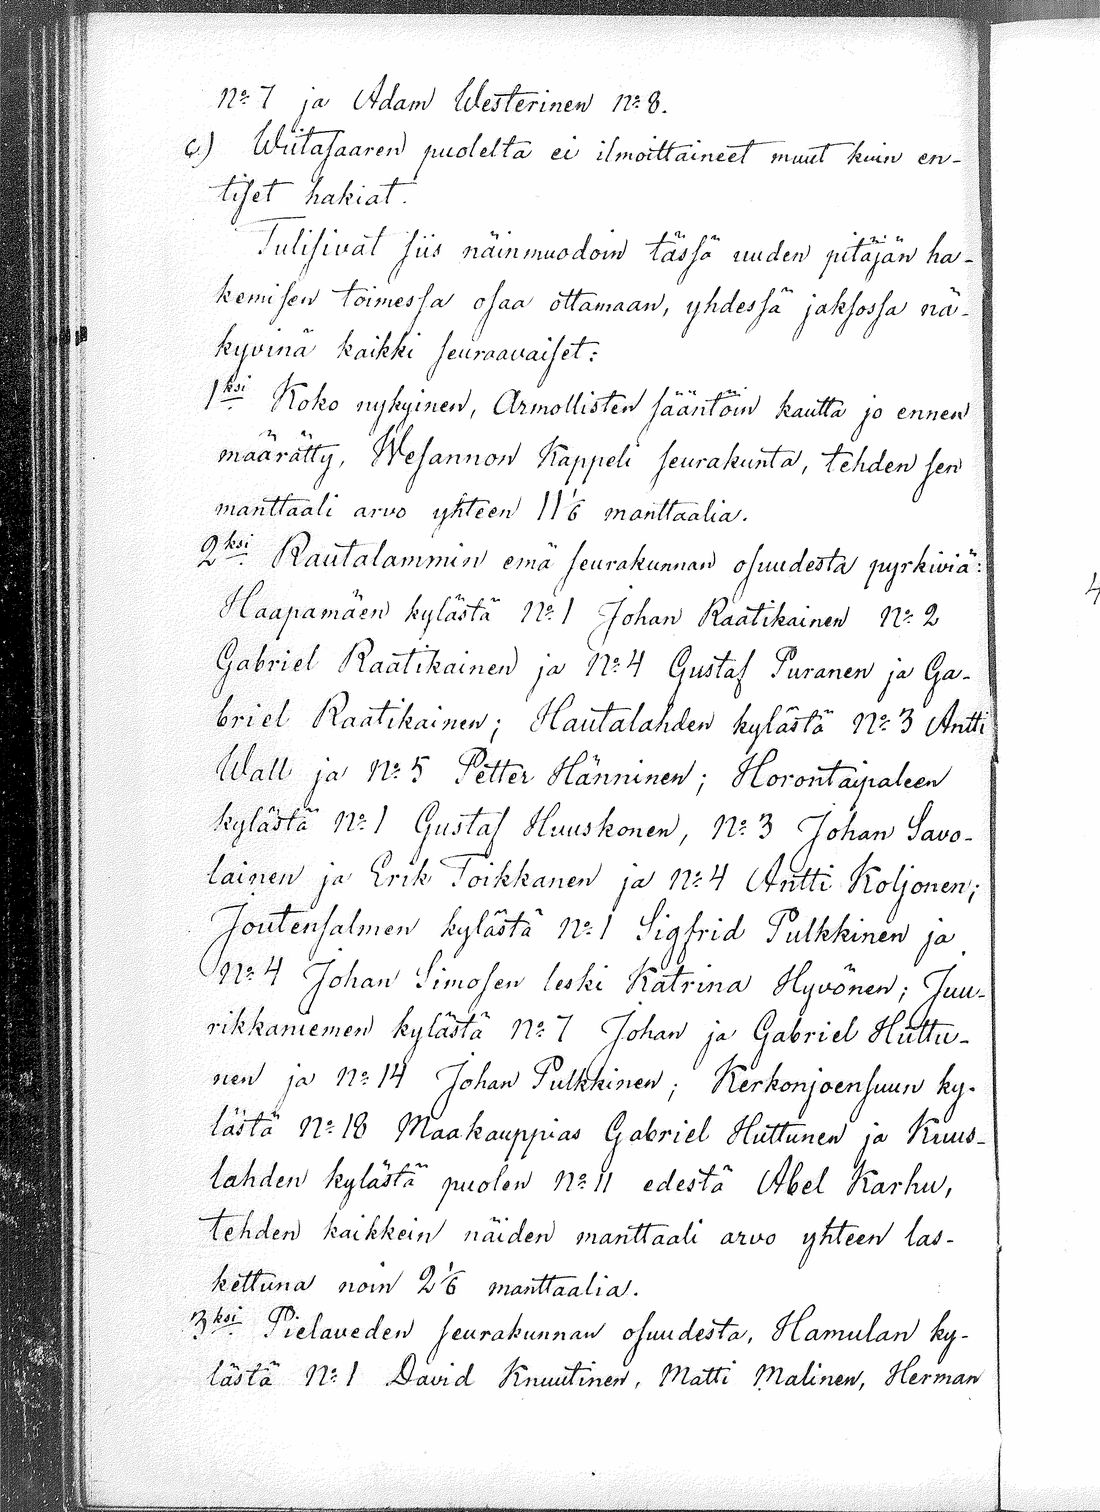 N:o 7 ja Adam Westerinen N:o 8.
c) Wiitasaaren puolelta ei ilmoittaineet muut kuin en-
tiset hakiat.
Tulisivat siis näinmuodoin tässä uuden pitäjän ha-
kemisen toimessa osaa ottamaan, yhdessä jaksossa nä-
kyvinä kaikki seuraavaiset:
1ksi Koko nykyinen, Armollisten sääntöin kautta jo ennen
määrätty, Wesannon Kappeli seurakunta, tehden sen
manttaali arvo yhteen 11 1/6 manttaalia.
2ksi Rautalammin emä seurakunnan osuudesta pyrkiviä:
Haapamäen kylästä N:o 1 Johan Raatikainen N:o 2
Gabriel Raatikainen ja N:o 4 Gustaf Puranen ja Ga-
briel Raatikainen; Hautalahden kylästä N:o 3 Antti
Wall ja N:o 5 Petter Hänninen; Horontaipaleen
kylästä N:o 1 Gustaf Huuskonen, N:o 3 Johan Savo-
lainen ja Erik Toikkanen ja N:o 4 Antti Koljonen;
Joutensalmen kylästä N:o 1 Sigfrid Pulkkinen ja
N:o 4 Johan Simosen leski Katrina Hyvönen; Juu-
rikkaniemen kylästä N:o 7 Johan ja Gabriel Huttu-
nen ja N:o 14 Johan Pulkkinen; Kerkonjoensuun ky-
lästä N:o 18 Maakauppias Gabriel Huttunen ja Kuus-
lahden kylästä puolen N:o 11 edestä Abel Karhu,
tehden kaikkein näiden manttaali arvo yhteen las-
kettuna noin 2 1/6 manttaalia.
3ksi Pielaveden seurakunnan osuudesta, Hamulan ky-
lästä N:o 1 David Knuutinen, Matti Malinen, Herman